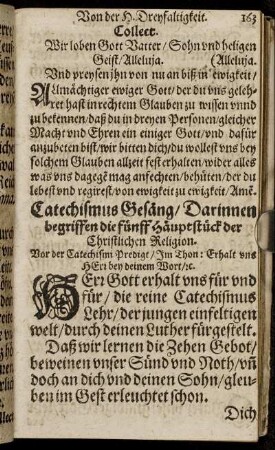 Von der H. Dreyfaltigkeit. 163
Collect.
Wir loben Gott Vatter/ Sohn vnd heligen
Geist/ Alleluja. (Alleluja.
Vnd preysen jhn von nu an biß in ewigkeit/
Allmächtiger ewiger Gott/ der du vns geleh-
ret hast in rechtem Glauben zu wissen vnnd
zu bekennen/ daß du in dreyen Personen/ gleicher
Macht vnd Ehren ein einiger Gott/ vnd dafür
anzubeten bist/ wir bitten dich/ du wollest vns bey
solchem Glauben allzeit fest erhalten/ wider alles
was vns dagegē mag anfechten/ behüten/ der du
lebest vnd regirest/ von ewigkeit zu ewigkeit/ Amē.
Catechismus Gesäng/ Darinnen
begriffen die fünff Häuptstück der
Christlichen Religion.
Vor der Catechism Predigt/ Im Thon: Erhalt vns
HErr bey deinem Wort/ ꝛc.
HErr Gott erhalt vns für vnd
für/ die reine Catechismus
Lehr/ der jungen einfeltigen
welt/ durch deinen Luther fürgestelt.
Daß wir lernen die Zehen Gebot/
beweinen vnser Sünd vnd Noth/ vñ
doch an dich vnd deinen Sohn/ gleu-
ben im Geist erleuchtet schon.
Dich